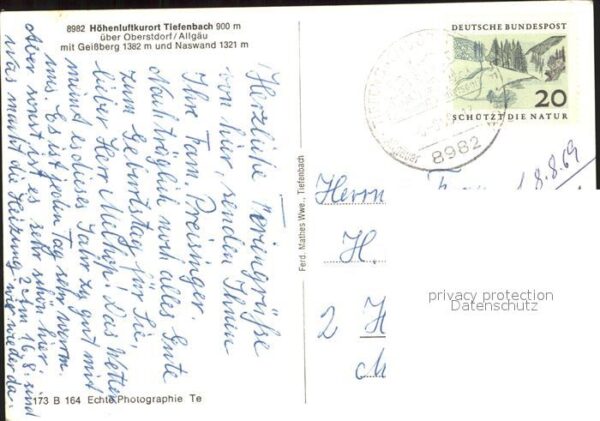 8982 Höhenluftkurort Tiefenbach 900 m
über Oberstdorf/Allgäu
mit Geißberg 1382 m und Naswand 1321 m
Herzliche Feriengrüße
von hier, senden Ihnen
Ihre Fam. Preisinger.
Nachträglich noch alles Gute
zum Geburtstag für Sie,
lieber Herr! Das Wetter
meint es dieses Jahr zu gut mit
uns. Es ist jeden Tag sehr warm.
Aber sonst ist es sehr schön hier.
Was macht die Heizung? Am 16.8. sind
wir wieder da.
173 B 164 Echte Photographie Te
Ferd. Mathes Wwe., Tiefenbach
DEUTSCHE BUNDESPOST
20
SCHÜTZT DIE NATUR
8982
8.8.69
Herrn
H.
2 H
M
privacy protection
Datenschutz